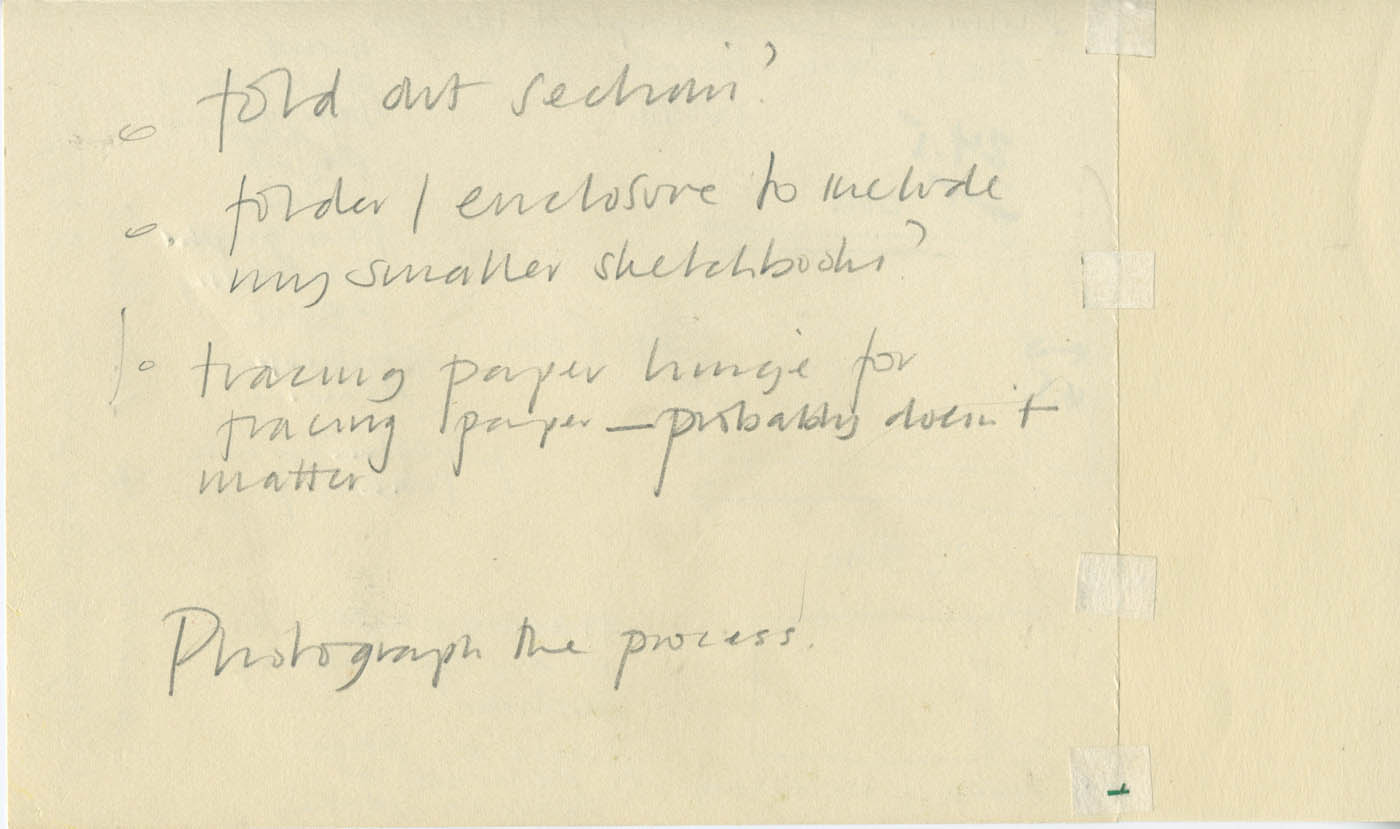 fold out section?
folder / enclosure to include
my smaller sketchbooks?
tracing paper hinge for
tracing paper — probably doesn't
matter.
Photograph the process.